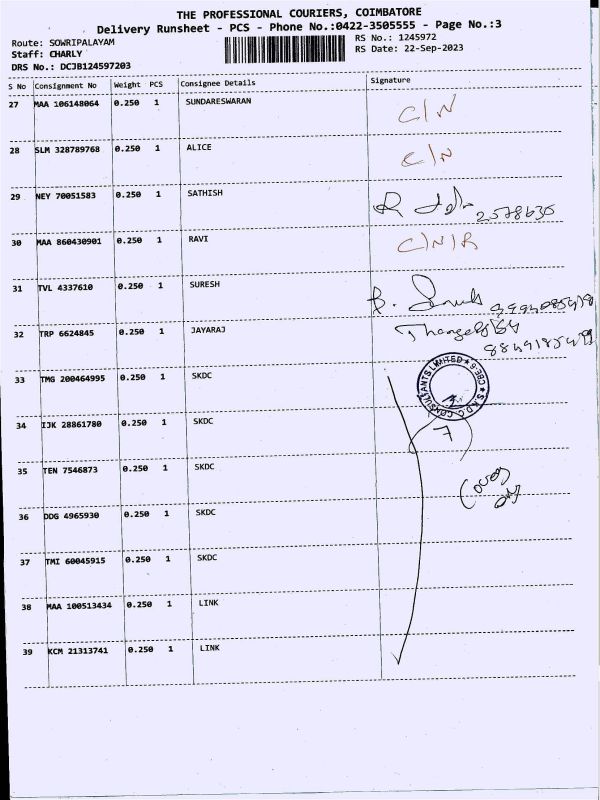 THE PROFESSIONAL COURIERS, COIMBATORE
Delivery Runsheet - PCS - Phone No.:0422-3505555 - Page No.:3
Route: SOWRIPALAYAM RS No.: 1245972
Staff: CHARLY RS Date: 22-Sep-2023
DRS No.: DCJB124597203
S No Consignment No Weight PCS Consignee Details Signature
27 MAA 106148064 0.250 1 SUNDARESWARAN C/N
28 SLM 328789768 0.250 1 ALICE C/N
29 NEY 70051583 0.250 1 SATHISH R
30 MAA 860430901 0.250 1 RAVI C/N/R
31 TVL 4337610 0.250 1 SURESH
32 TRP 6624845 0.250 1 JAYARAJ
33 TMG 200464995 0.250 1 SKDC
S.K.D.C. CONSULTANTS LIMITED ★ CBE-6 ★
34 IJK 28861780 0.250 1 SKDC 7
35 TEN 7546873 0.250 1 SKDC
36 DDG 4965930 0.250 1 SKDC
37 TMI 60045915 0.250 1 SKDC
38 MAA 100513434 0.250 1 LINK
39 KCM 21313741 0.250 1 LINK